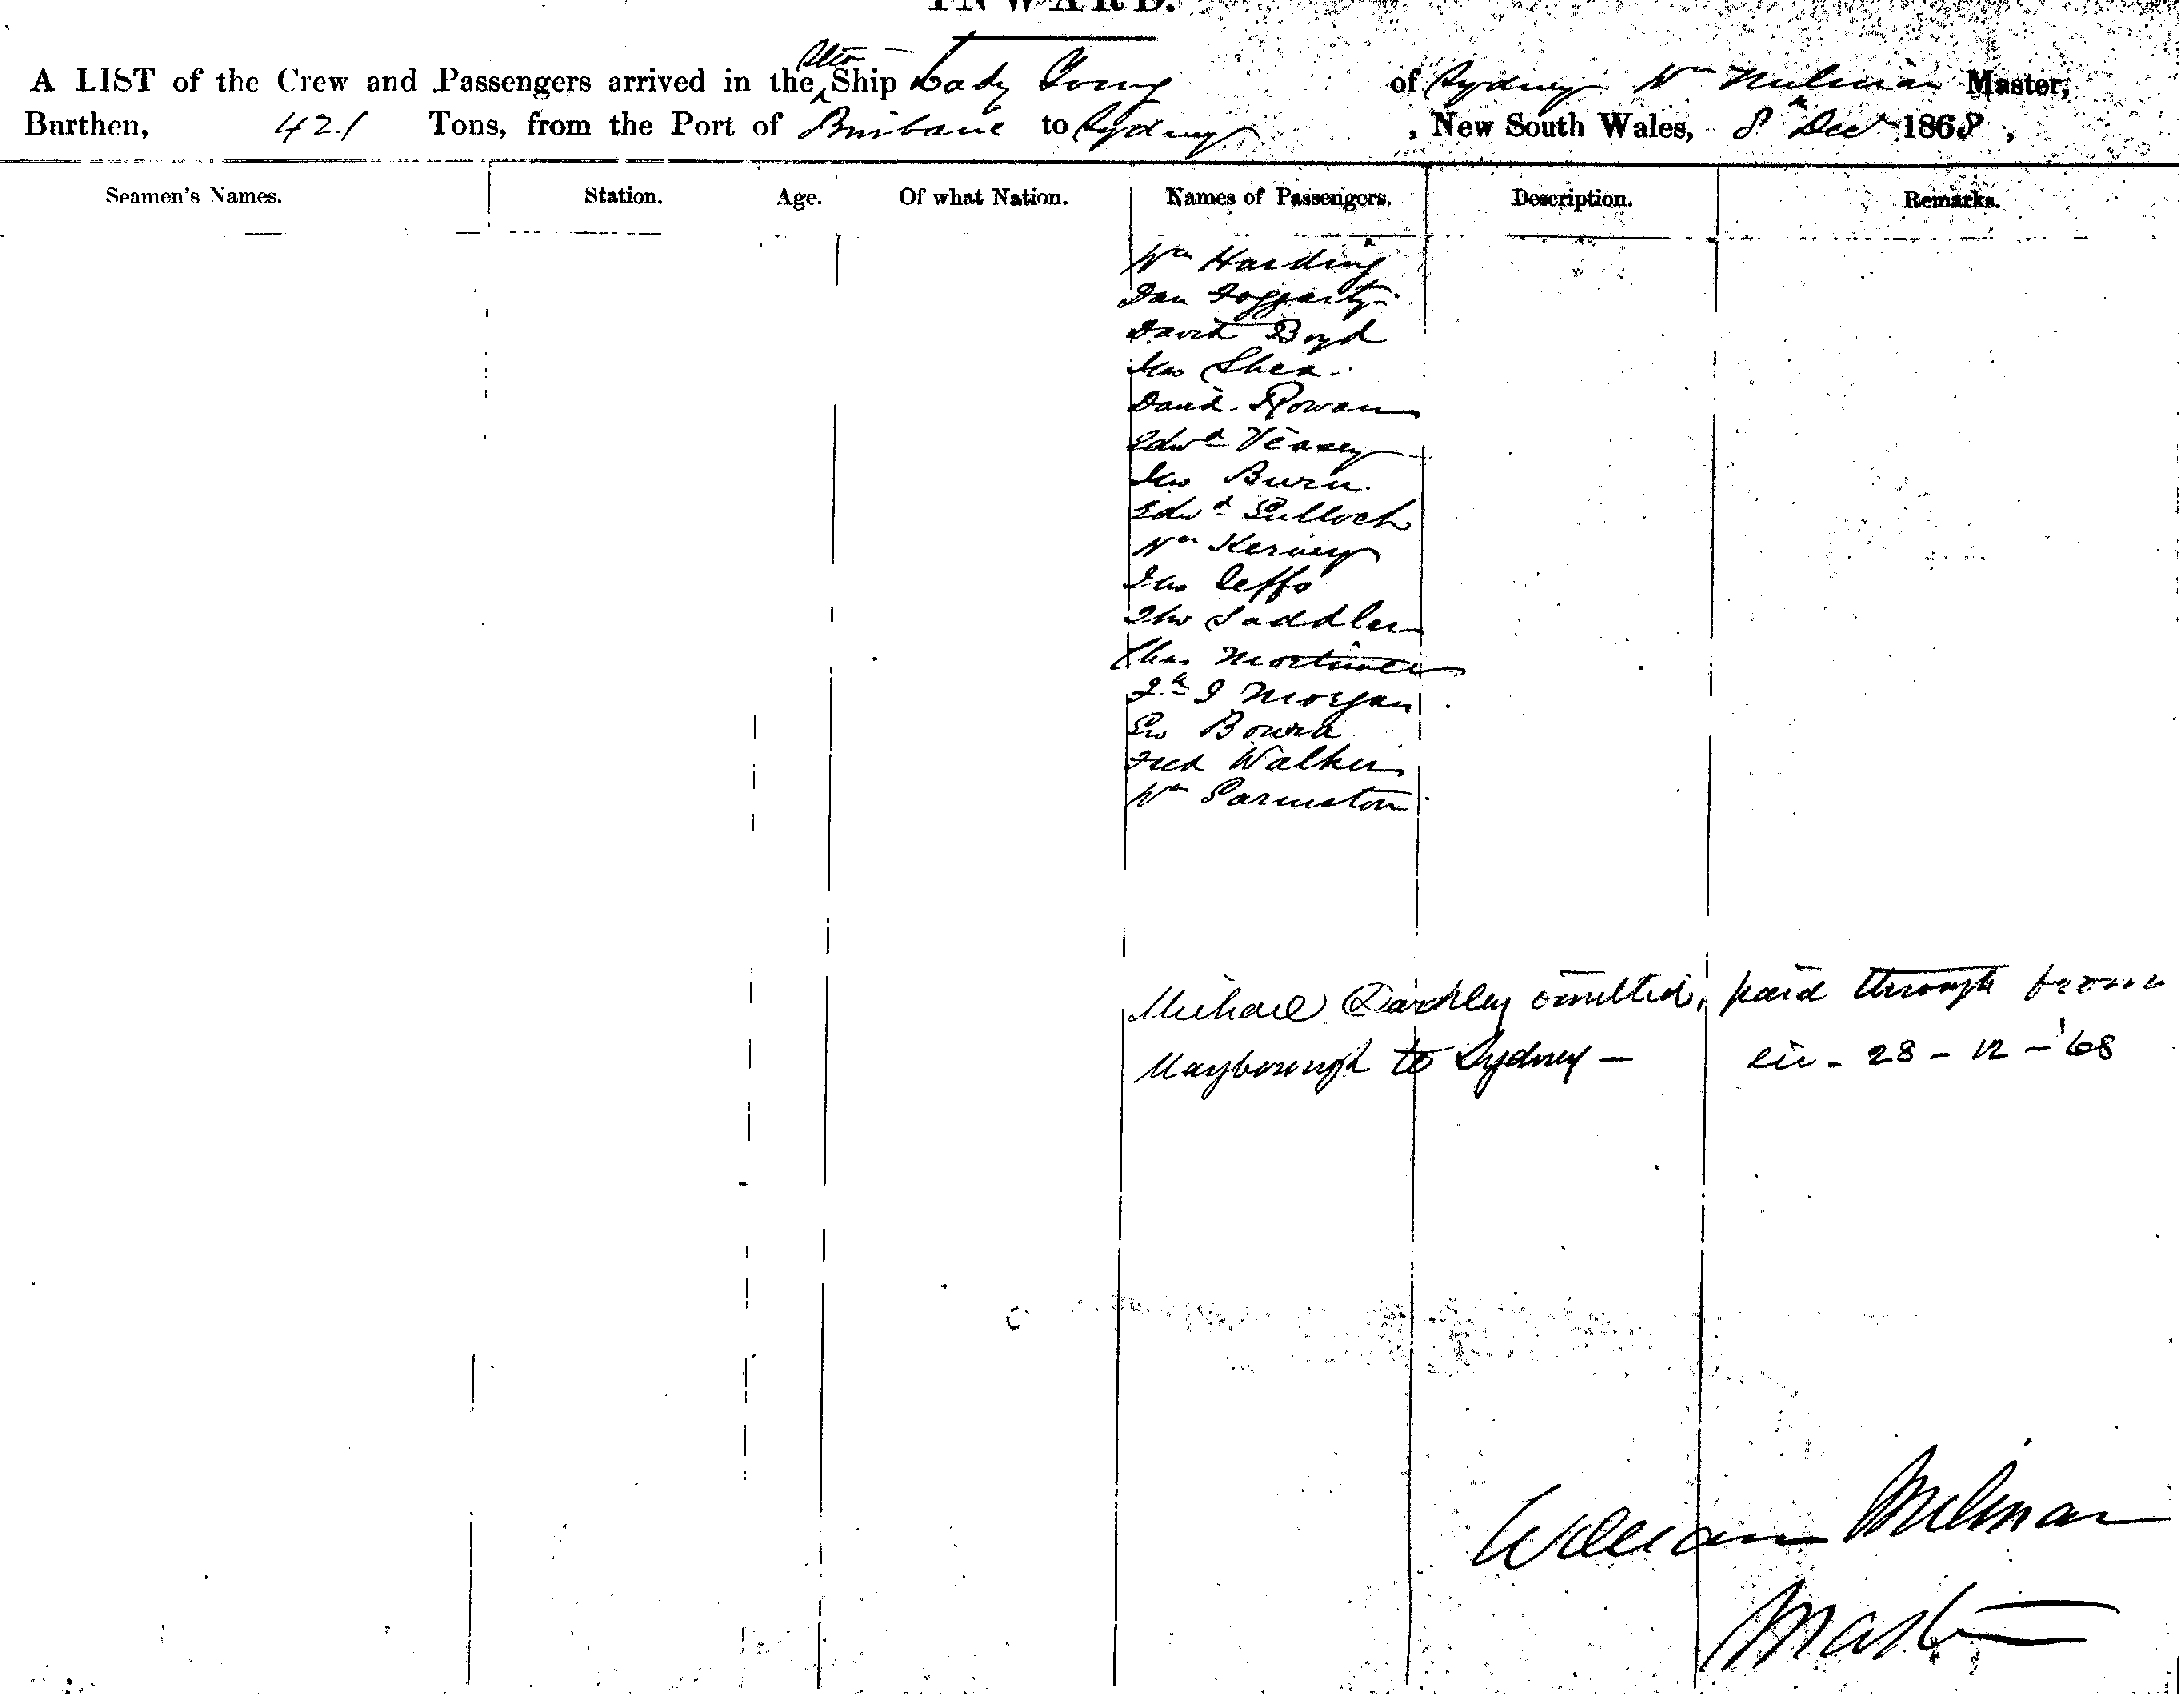 INWARD.
A LIST of the Crew and Passengers arrived in the Ship Lady Young of Sydney Wm Milman Master,
Burthen, 421 Tons, from the Port of Brisbane to Sydney, New South Wales, 8th Dec 1868,
Seamen's Names. Station. Age. Of what Nation. Names of Passengers. Description. Remarks.
Wm Harding
Dan Foggarty
David Boyd
Shea
David Rowan
Edwd Veasey
Burn
Edwd Bulloch
Wm Kerney
Jas Jeffs
Thos Saddler
Chas Mortimer
J Morgan
Geo Bourne
Fred Walker
Wm Parmeton
Michael omitted, paid through from
Mayborough to Sydney - 28-12-'68
William Milman
Master